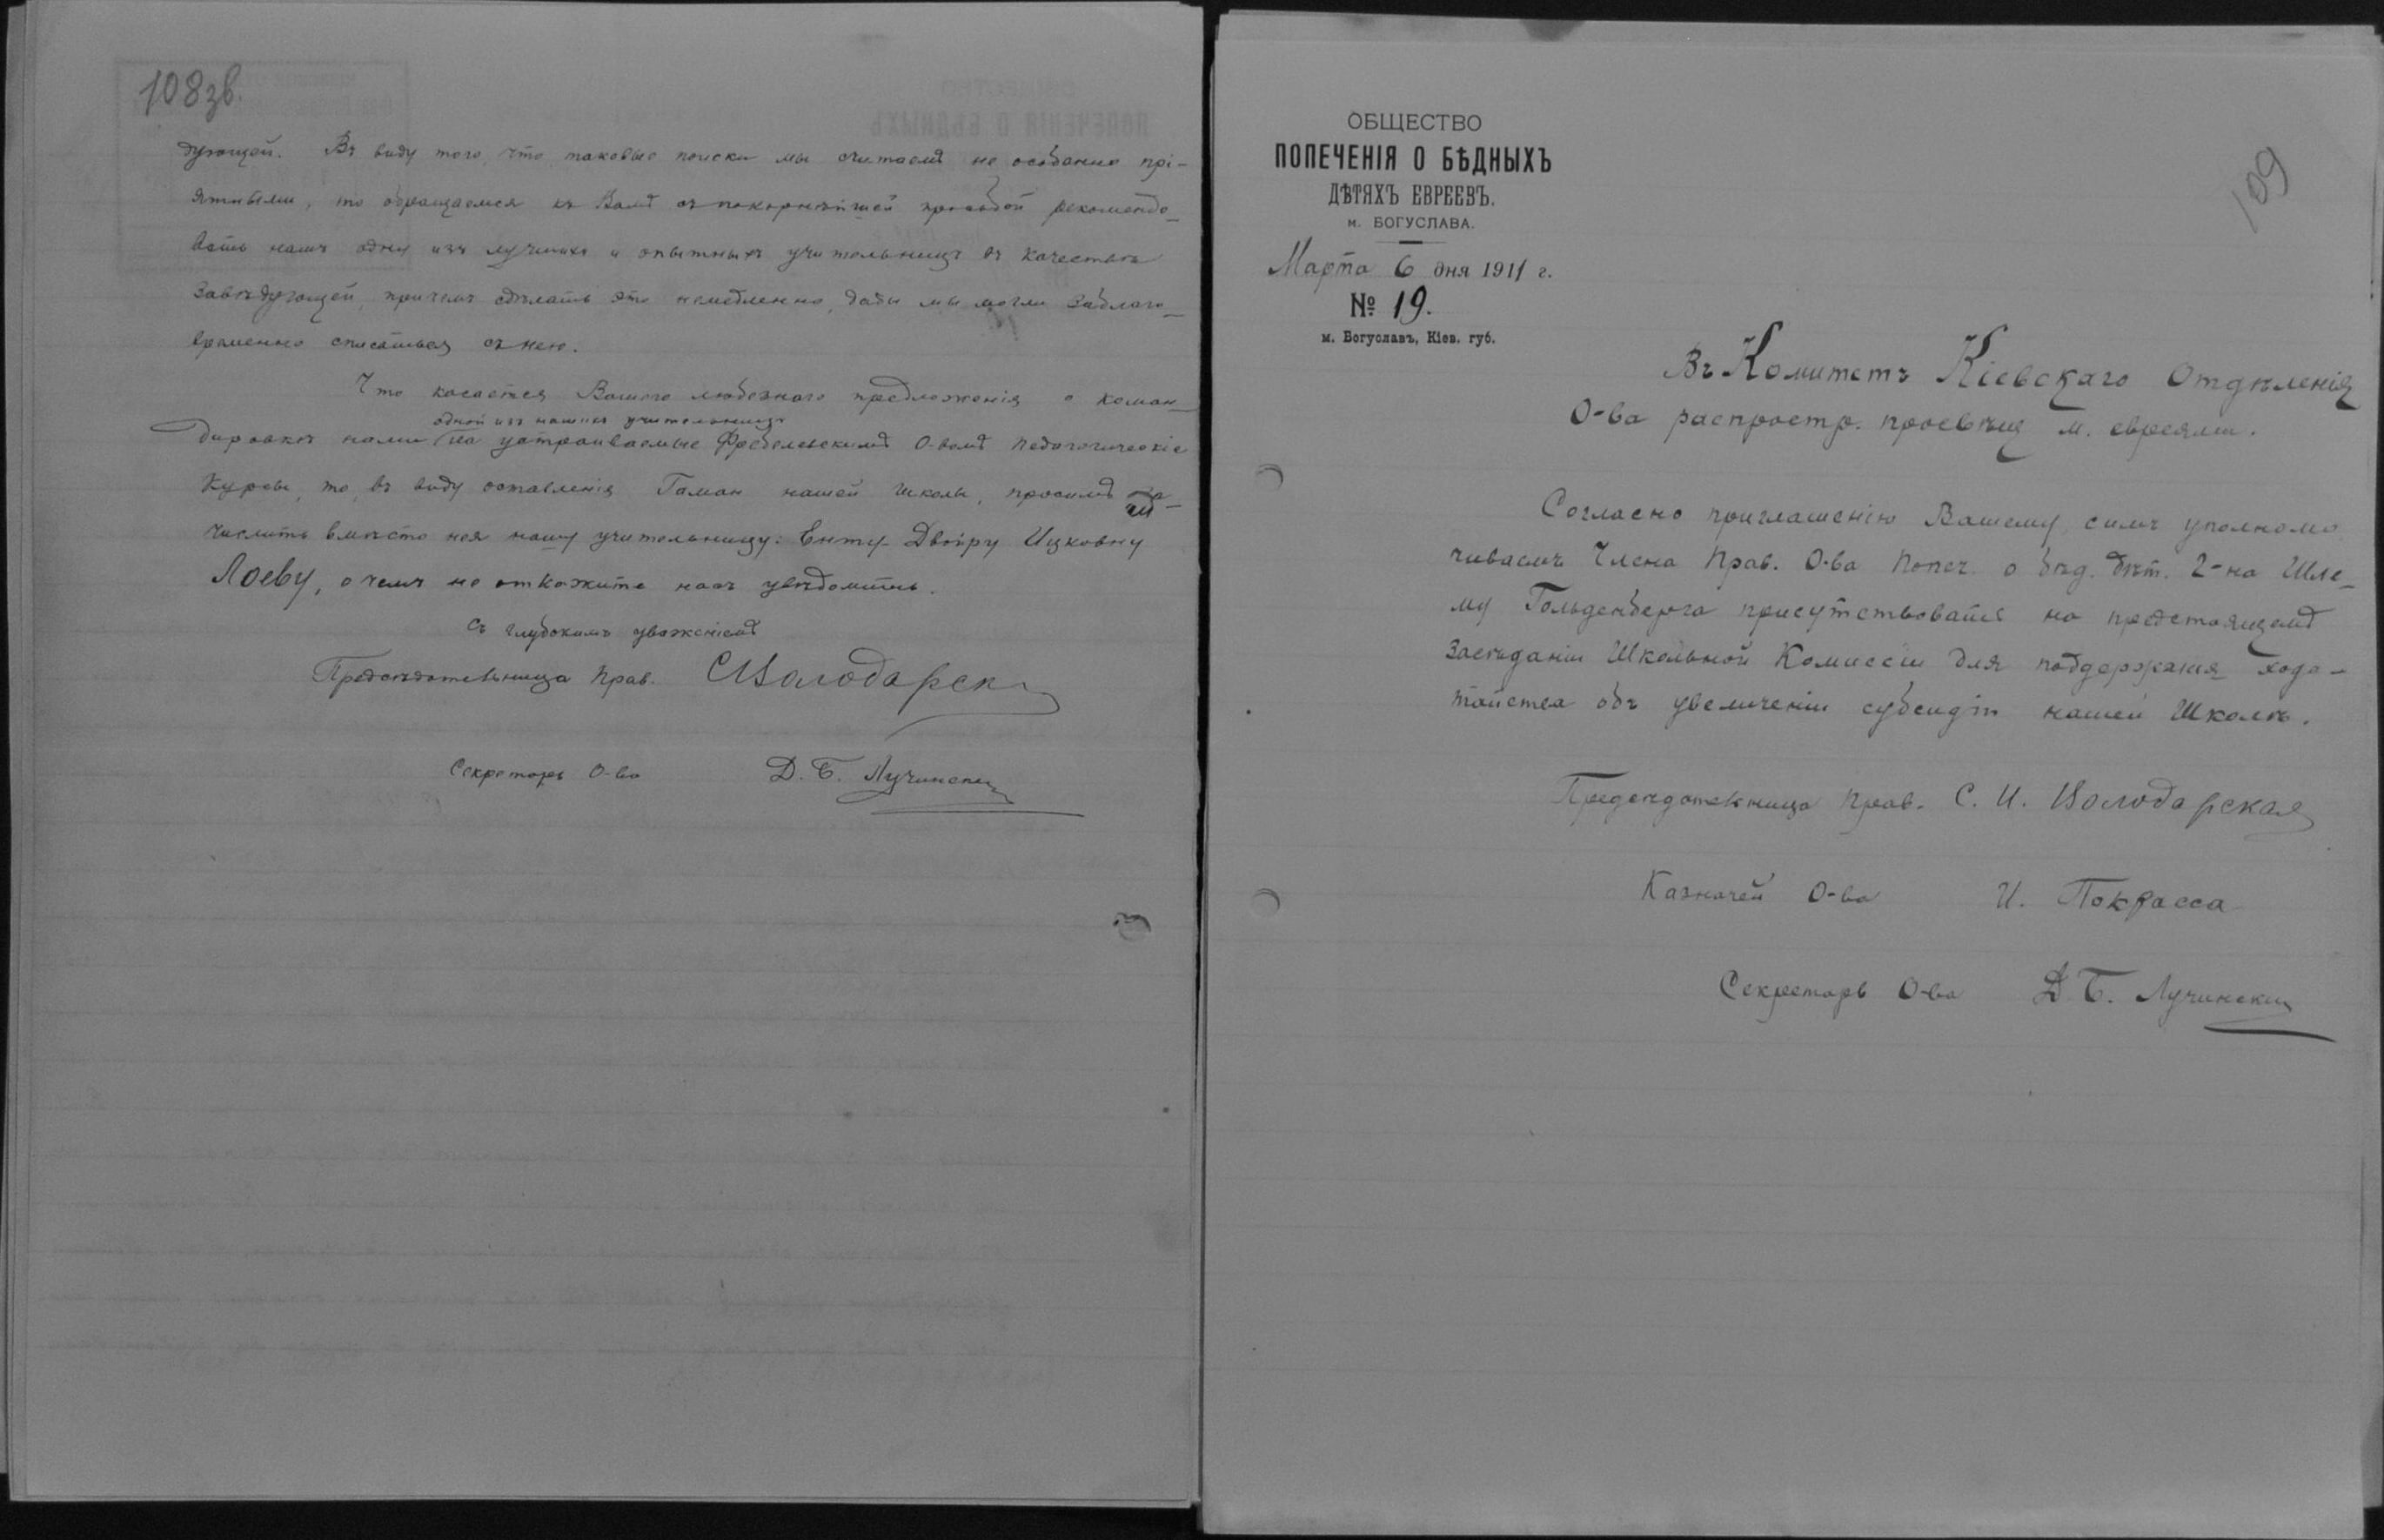 108зв.
дующей. Въ виду того, что таковые поиски мы считаемъ не особенно прі-
ятными, то обращаемся къ Вамъ съ покорнѣйшей просьбой рекомендо-
вать намъ одну изъ лучшихъ и опытныхъ учительницъ въ качествѣ
Завѣдующей, причемъ сдѣлать это немедленно, дабы мы могли заблаго-
временно списаться съ нею.
Что касается Вашего любезнаго предложенія о коман-
одной изъ нашихъ учительницъ
дировкѣ нами на устраиваемые Фребелевскимъ О-вомъ педагогическіе
Курсы, то, въ виду оставленія Гаман нашей школы, просимъ за-
числить вмѣсто нея нашу учительницу: Енту-Двойру Ицковну
Лоеву, о чемъ не откажите насъ увѣдомить.
Съ глубокимъ уваженіемъ
Предсѣдательница Прав. С Володарск
Секретарь О-ва Д. Б. Лучинский
109
ОБЩЕСТВО
ПОПЕЧЕНІЯ О БѢДНЫХЪ
ДѢТЯХЪ ЕВРЕЕВЪ.
м. БОГУСЛАВА.
Марта 6 дня 1911 г.
№ 19.
м. Богуславъ, Кіев. губ.
Въ Комитетъ Кіевскаго Отдѣленія
О-ва распростр. просвѣщ м. евреями.
Согласно приглашенію Вашему, симъ уполномо
чиваемъ Члена Прав. О-ва Попеч. о бѣд. дѣт. Г-на Шле-
му Гольденберга присутствовать на предстоящемъ
Засѣданіи Школьной Комиссіи для поддержания хода-
тайства объ увеличеніи субсидіи нашей Школѣ.
Предсѣдательница Прав. С. И. Володарская
Казначей О-ва И. Покрасса
Секретарь О-ва Д. Б. Лучинский